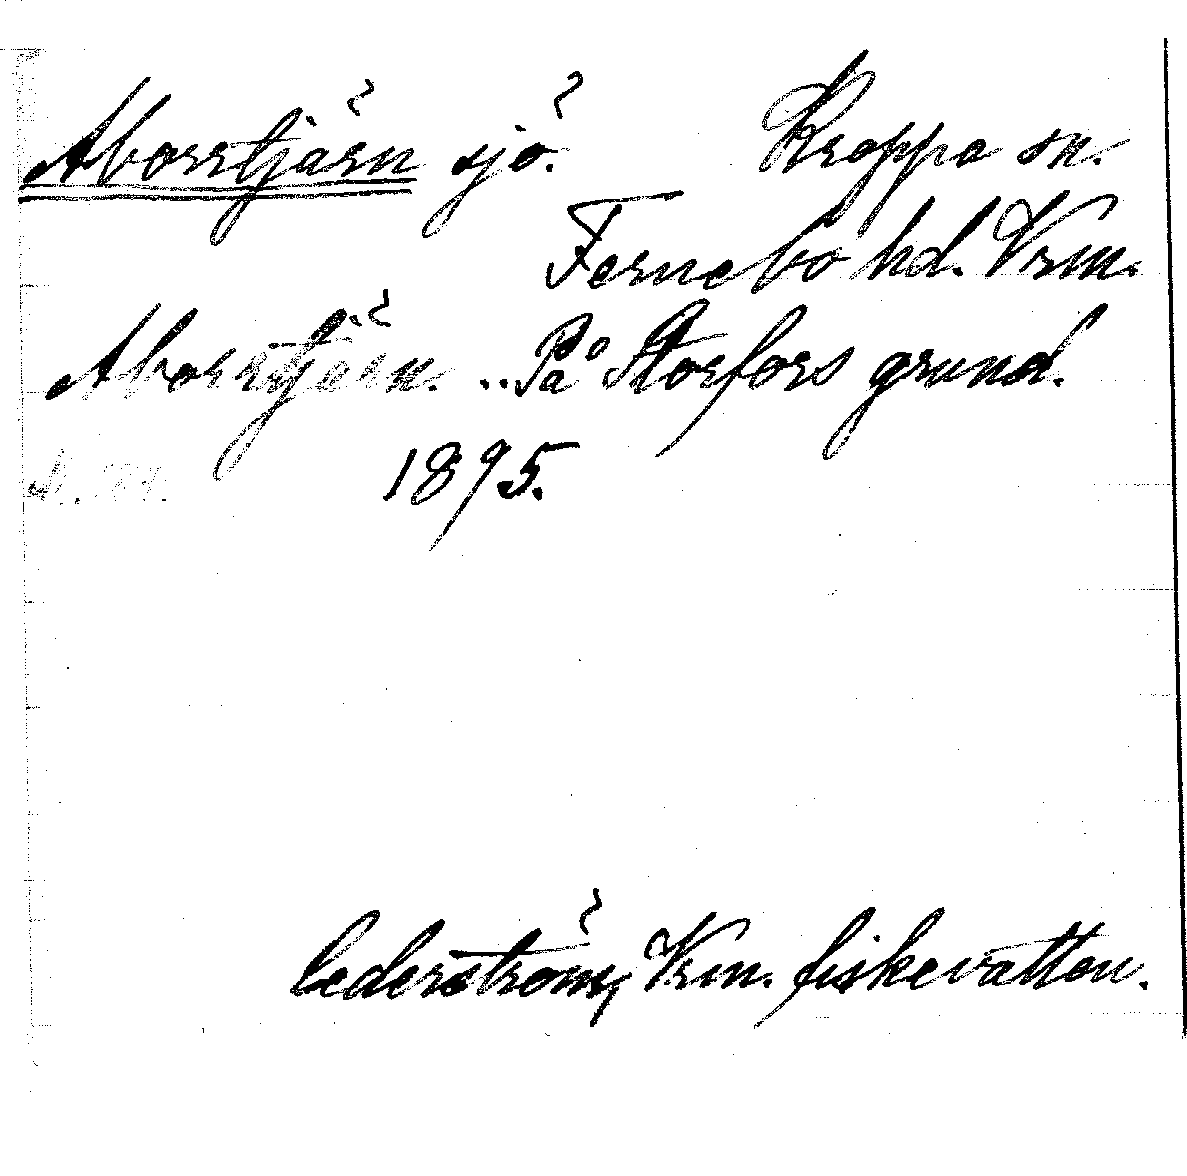 Aborrtjärn sjö. Kroppa sn.
Fernebo hd. Vrm.
Aborrtjärn. .. På Storfors grund.
1895.
Cederström, Vrm. fiskevatten.